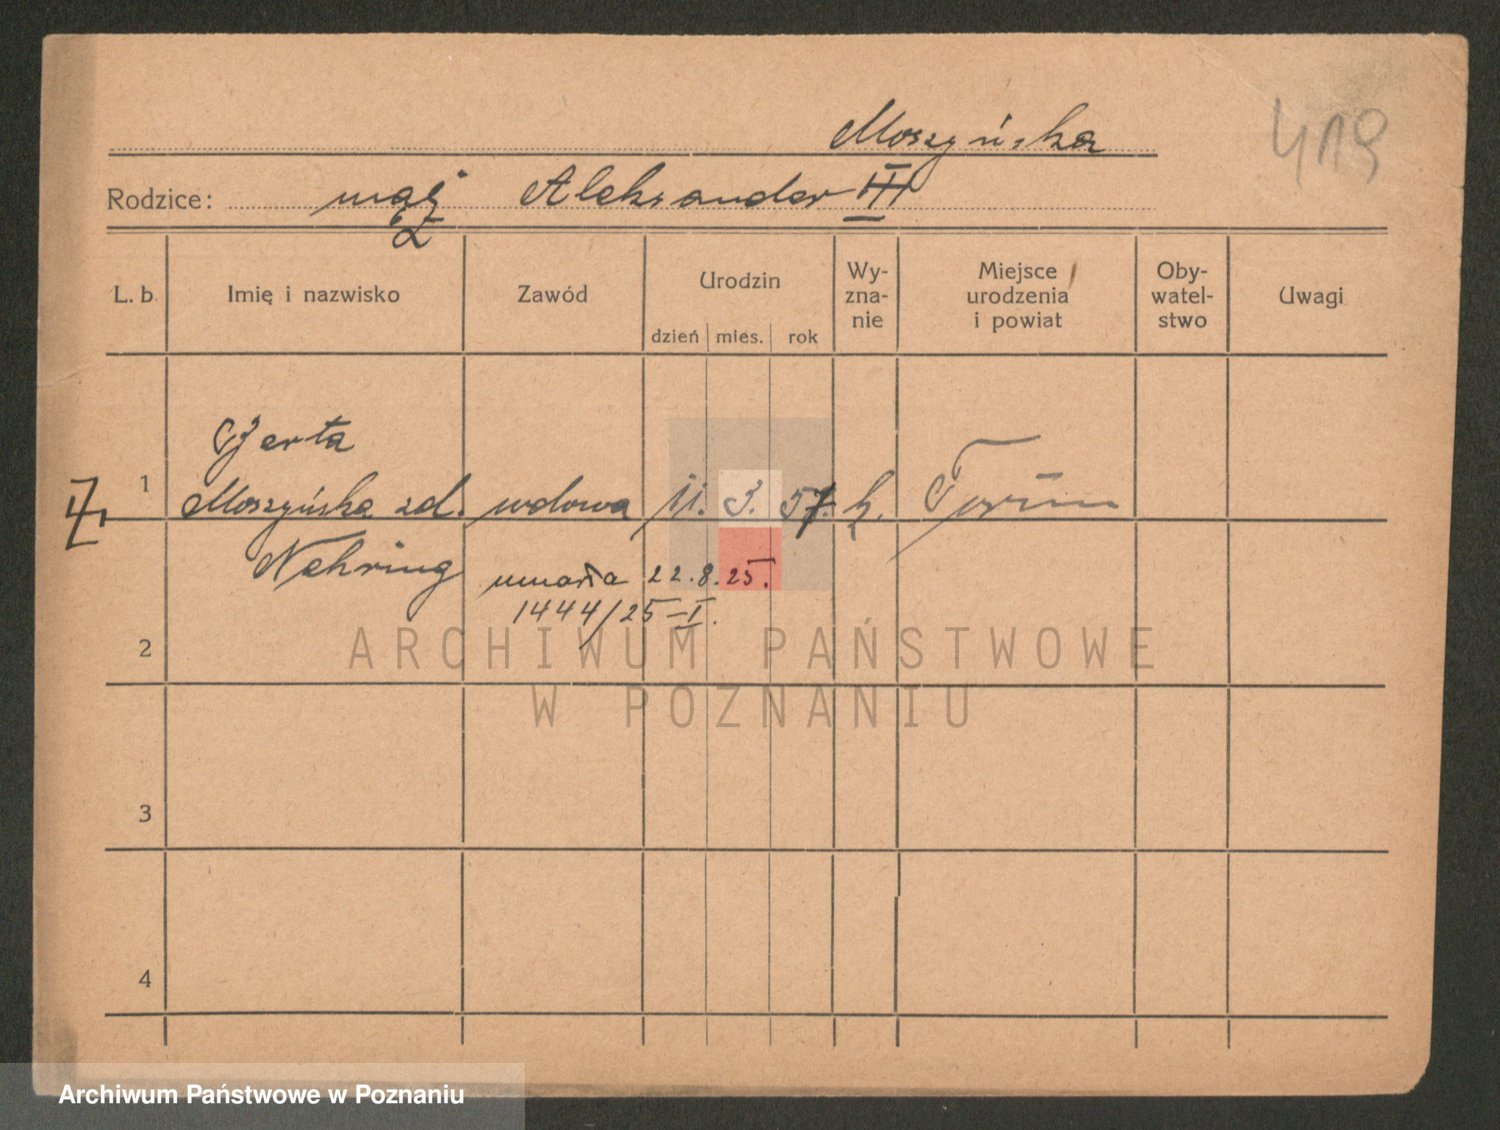 Moszyńska
419
Rodzice: mąż Aleksander III
L. b. Imię i nazwisko Zawód Urodzin Wy-
zna-
nie Miejsce
urodzenia
i powiat Oby-
watel-
stwo Uwagi
dzień mies. rok
Gerta
1 Moszyńska zd. wdowa 11. 3. 57. k. Toruń
Nehring umarła 22.8.25.
1444/25-I.
2
ARCHIWUM PAŃSTWOWE
W POZNANIU
3
4
Archiwum Państwowe w Poznaniu